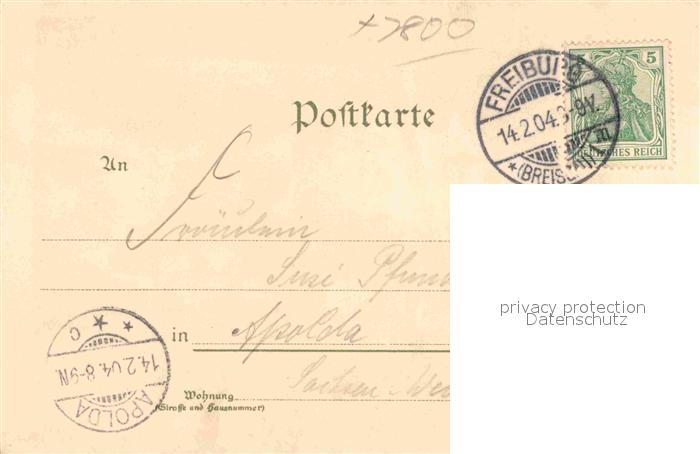 +7800
5 5
DEUTSCHES REICH
FREIBURG
14.2.04. 8-9V.
*(BREISGAU)
Postkarte
An
Fräulein
Susi
privacy protection
Datenschutz
in Apolda
Sachsen-Wei
Wohnung
(Straße und Hausnummer)
* * C
14.2.04. 8-9N.
APOLDA